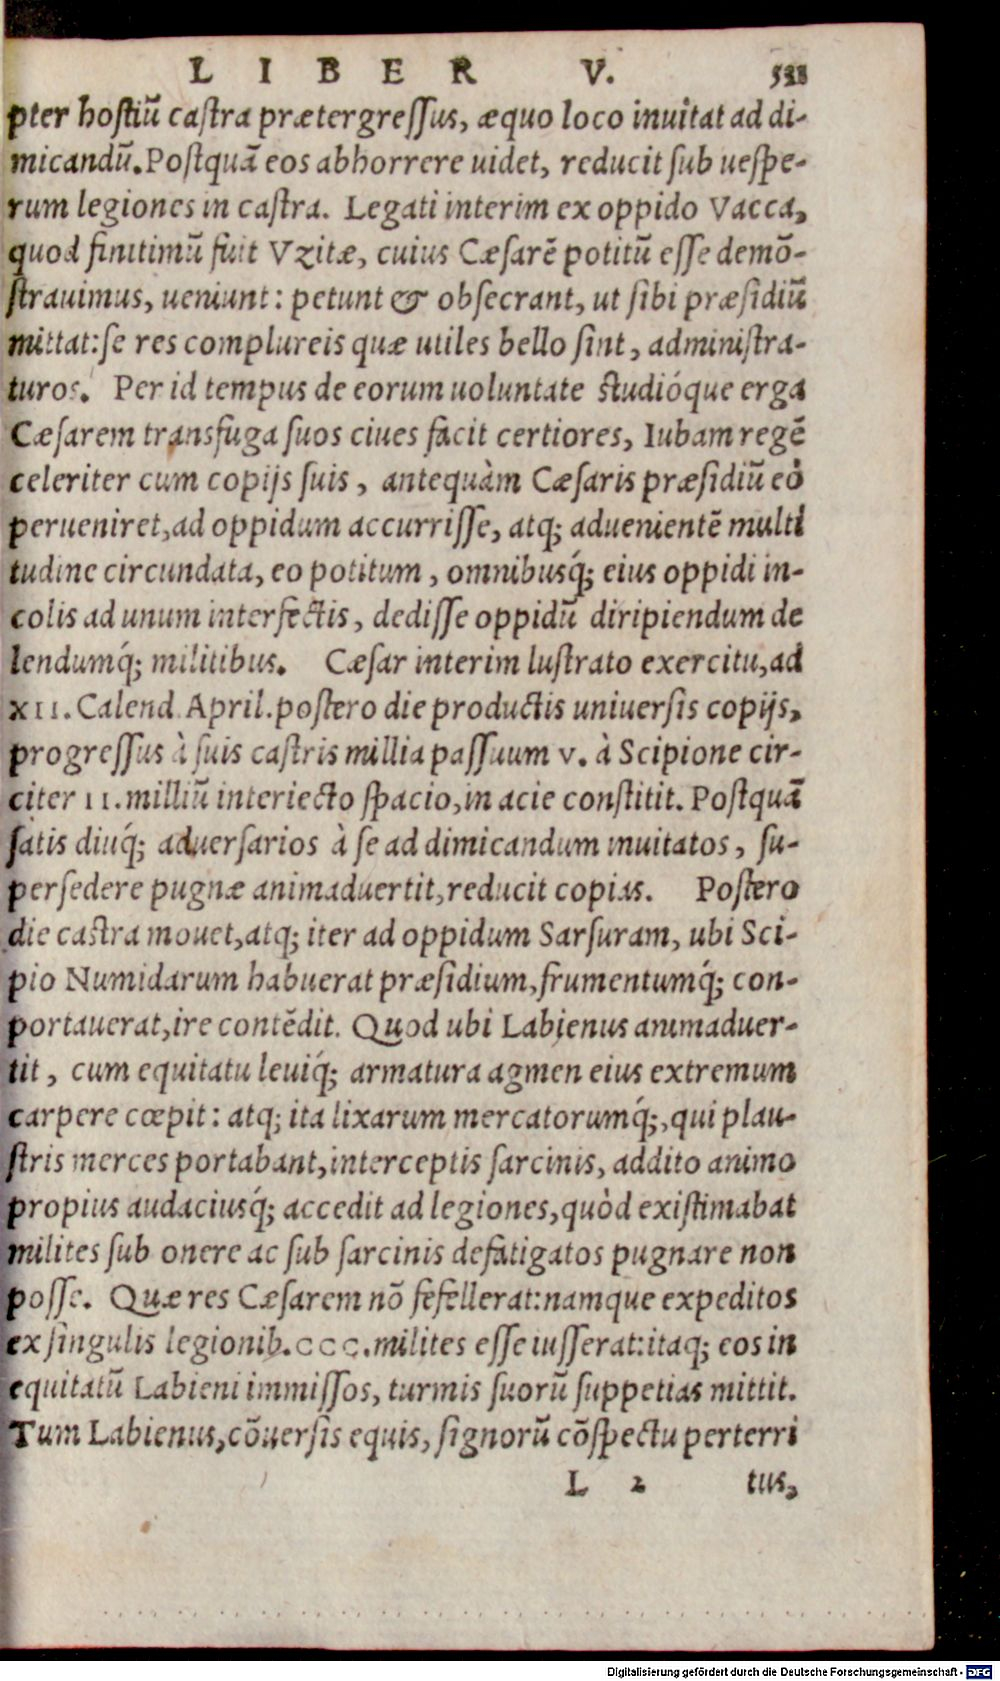 LIBER V. 531
pter hostiũ castra prætergressus, æquo loco inuitat ad di-
micandũ. Postquã eos abhorrere uidet, reducit sub uespe-
rum legiones in castra. Legati interim ex oppido Vacca,
quod finitimũ fuit Vzitæ, cuius Cæsarẽ potitũ esse demõ-
strauimus, ueniunt: petunt & obsecrant, ut sibi præsidiũ
mittat: se res complureis quæ utiles bello sint, administra-
turos. Per id tempus de eorum uoluntate studióque erga
Cæsarem transfuga suos ciues facit certiores, Iubam regẽ
celeriter cum copijs suis, antequàm Cæsaris præsidiũ eò
perueniret, ad oppidum accurrisse, atq; aduenientẽ multi
tudine circundata, eo potitum, omnibusq́; eius oppidi in-
colis ad unum interfectis, dedisse oppidũ diripiendum de
lendumq́; militibus. Cæsar interim lustrato exercitu, ad
XII. Calend. April. postero die productis uniuersis copijs,
progressus à suis castris millia passuum v. à Scipione cir-
citer II. milliũ interiecto spacio, in acie constitit. Postquã
satis diuq́; aduersarios à se ad dimicandum inuitatos, su-
persedere pugnæ animaduertit, reducit copias. Postero
die castra mouet, atq; iter ad oppidum Sarsuram, ubi Sci-
pio Numidarum habuerat præsidium, frumentumq́; con-
portauerat, ire contẽdit. Quod ubi Labienus animaduer-
tit, cum equitatu leuiq́; armatura agmen eius extremum
carpere cœpit: atq; ita lixarum mercatorumq́;, qui plau-
stris merces portabant, interceptis sarcinis, addito animo
propius audaciusq́; accedit ad legiones, quòd existimabat
milites sub onere ac sub sarcinis defatigatos pugnare non
posse. Quæ res Cæsarem nõ fefellerat: namque expeditos
ex singulis legionib. CCC. milites esse iusserat: itaq; eos in
equitatũ Labieni immissos, turmis suorũ suppetias mittit.
Tum Labienus, cõuersis equis, signorũ cõspectu perterri
L 2 tus,
Digitalisierung gefördert durch die Deutsche Forschungsgemeinschaft - DFG